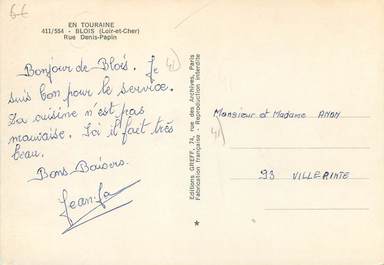 EN TOURAINE
411/554 - BLOIS (Loir-et-Cher)
Rue Denis-Papin
Bonjour de Blois. Je
suis bon pour le service.
La cuisine n'est pas
mauvaise. Ici il fait très
beau.
Bons Baisers
Editions GREFF, 74, rue des Archives, Paris
Fabrication française - Reproduction interdite
Monsieur et Madame ANDN
93 VILLEPINTE